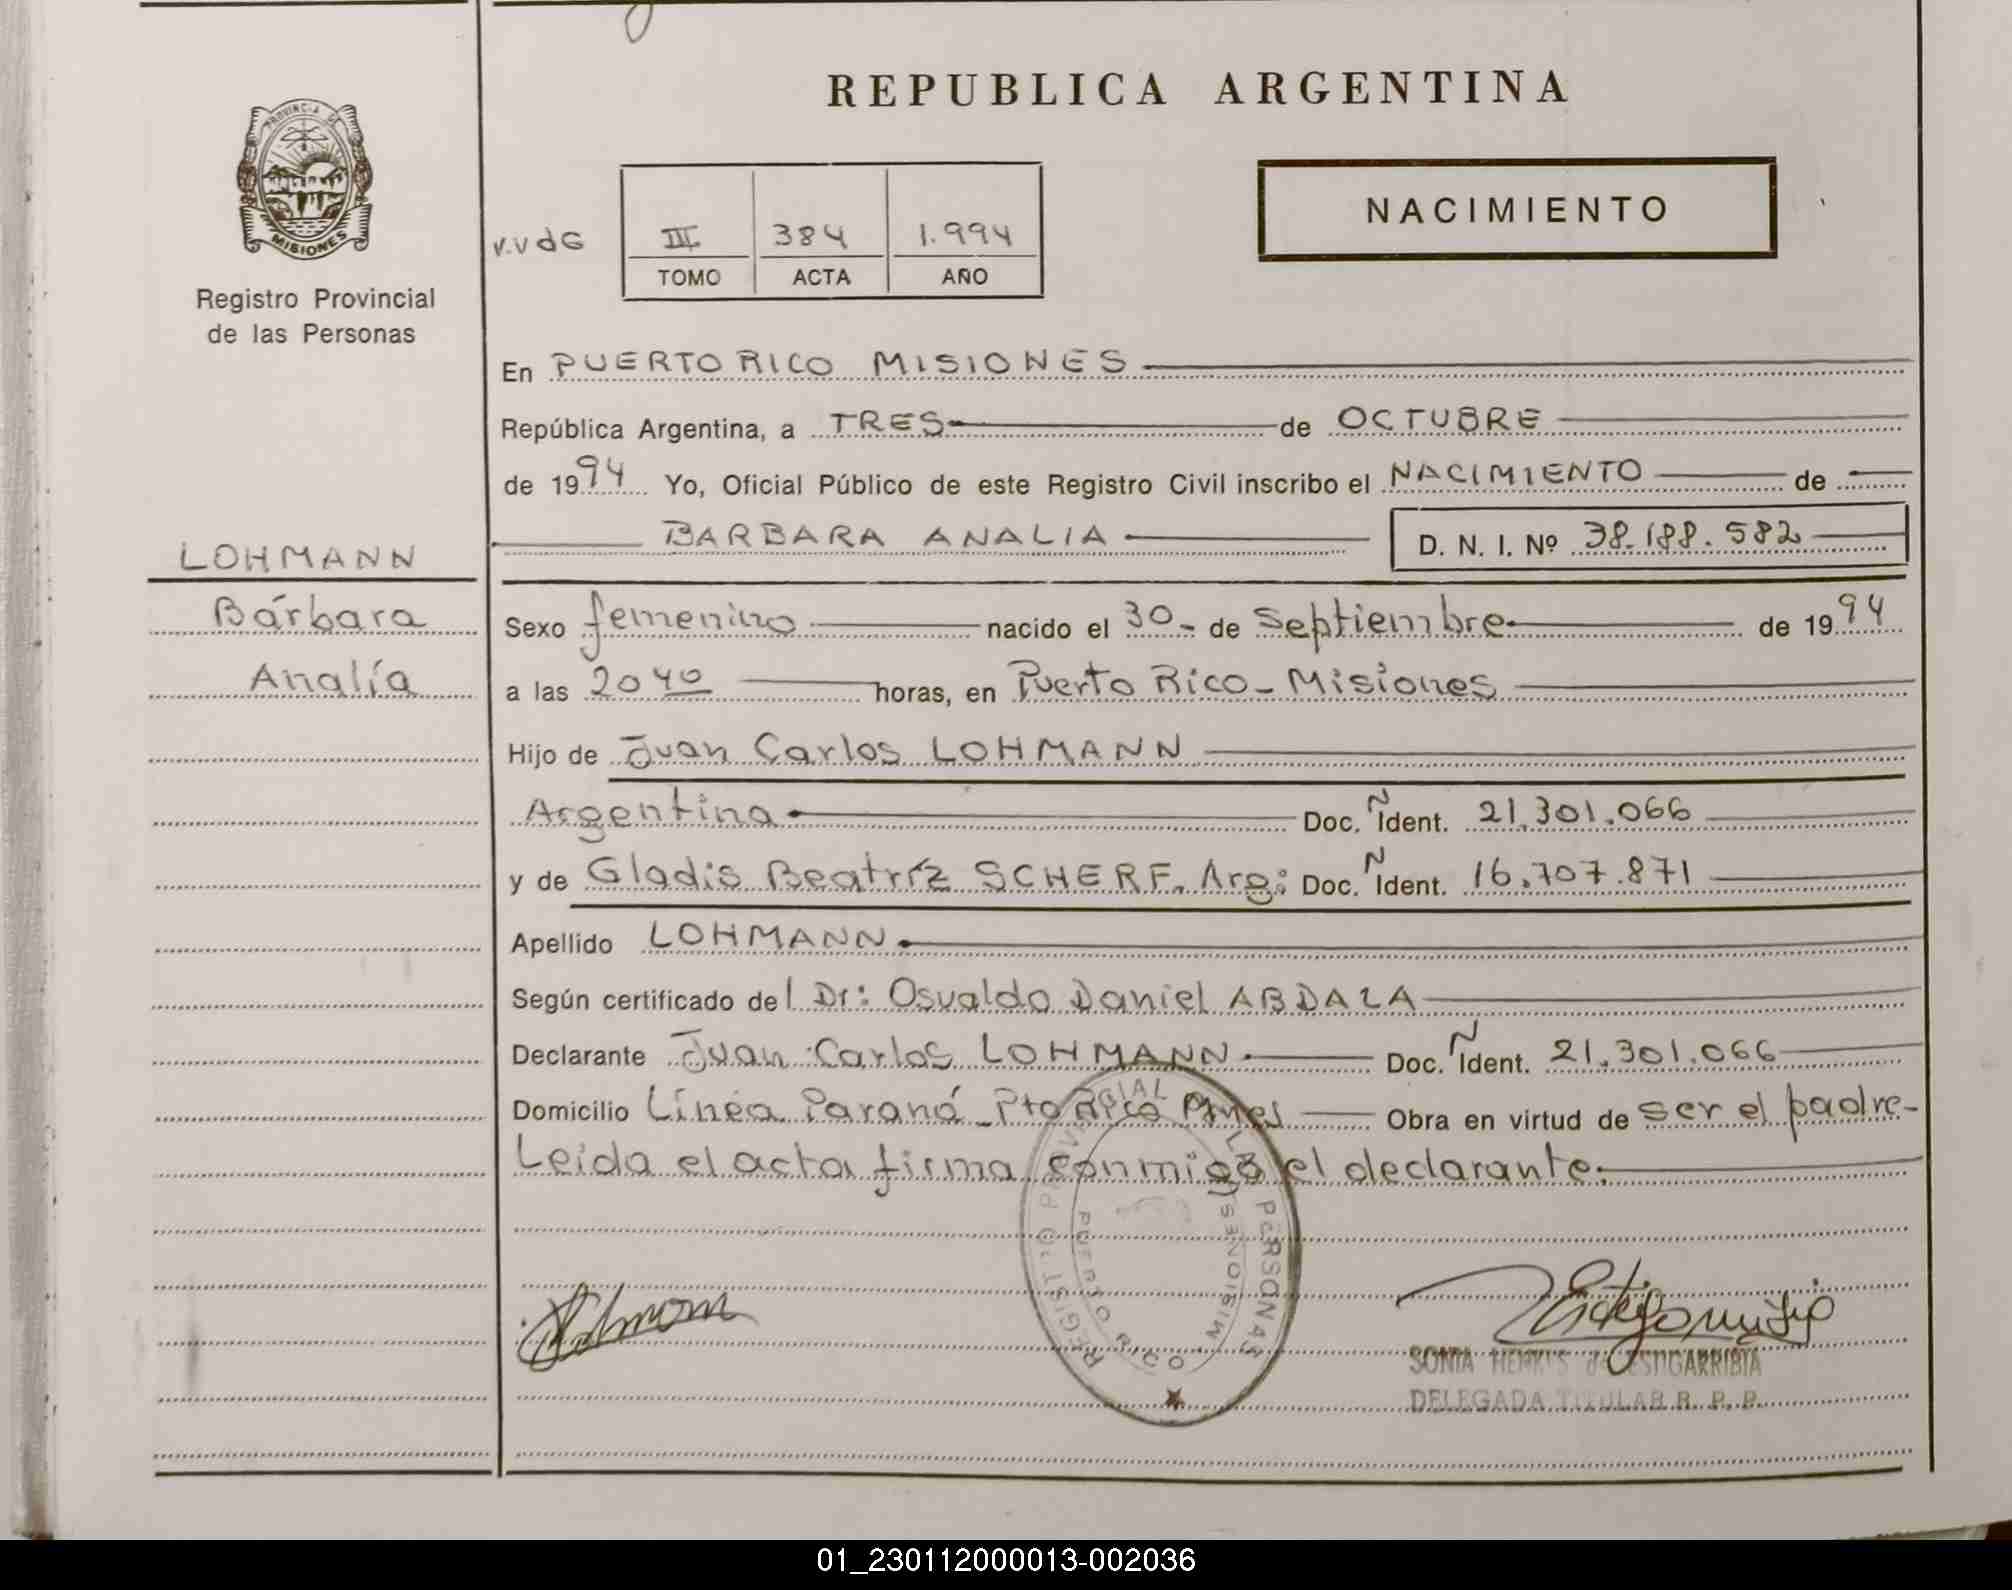 REPUBLICA ARGENTINA
PROVINCIA DE
MISIONES
Registro Provincial
de las Personas
NACIMIENTO
v.v d G
III 384 1.994
TOMO ACTA AÑO
En PUERTO RICO MISIONES
República Argentina, a TRES de OCTUBRE
de 1994 Yo, Oficial Público de este Registro Civil inscribo el NACIMIENTO de
BARBARA ANALIA D. N. I. Nº 38.188.582
LOHMANN
Bárbara
Analía
Sexo femenino nacido el 30- de septiembre de 1994
a las 20 40 horas, en Puerto Rico - Misiones
Hijo de Juan Carlos LOHMANN
Argentina Doc. Ñ Ident. 21.301.066
y de Gladis Beatríz SCHERF. Arg: Doc. Ñ Ident. 16.707.871
Apellido LOHMANN
Según certificado del Dr: Osvaldo Daniel ABDALA
Declarante Juan Carlos LOHMANN Doc. Ñ Ident. 21.301.066
Domicilio Línea Paraná - Pto Rico Mnes Obra en virtud de ser el padre-
Leída el acta firma conmigo el declarante.
REGISTRO PROVINCIAL DE LAS PERSONAS
PUERTO RICO (MISIONES)
SONIA HENKUS de ESTIGARRIBIA
DELEGADA TITULAR R. P. P.
01_230112000013-002036